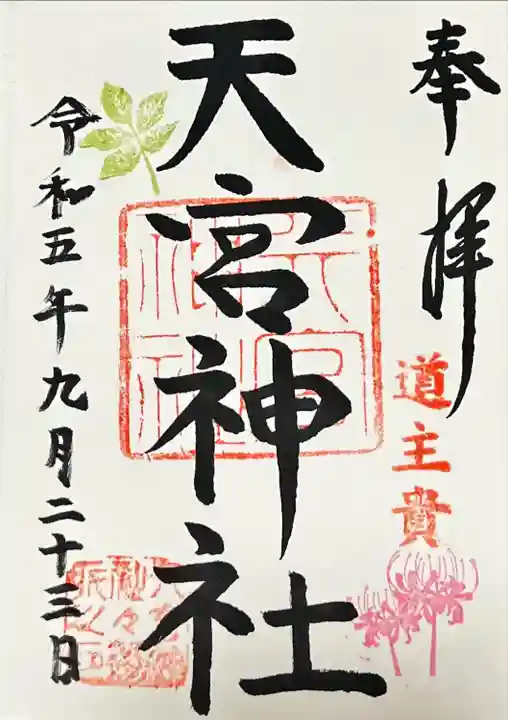 奉拝
道主貴
天宮神社
天宮
神社
令和五年九月二十三日